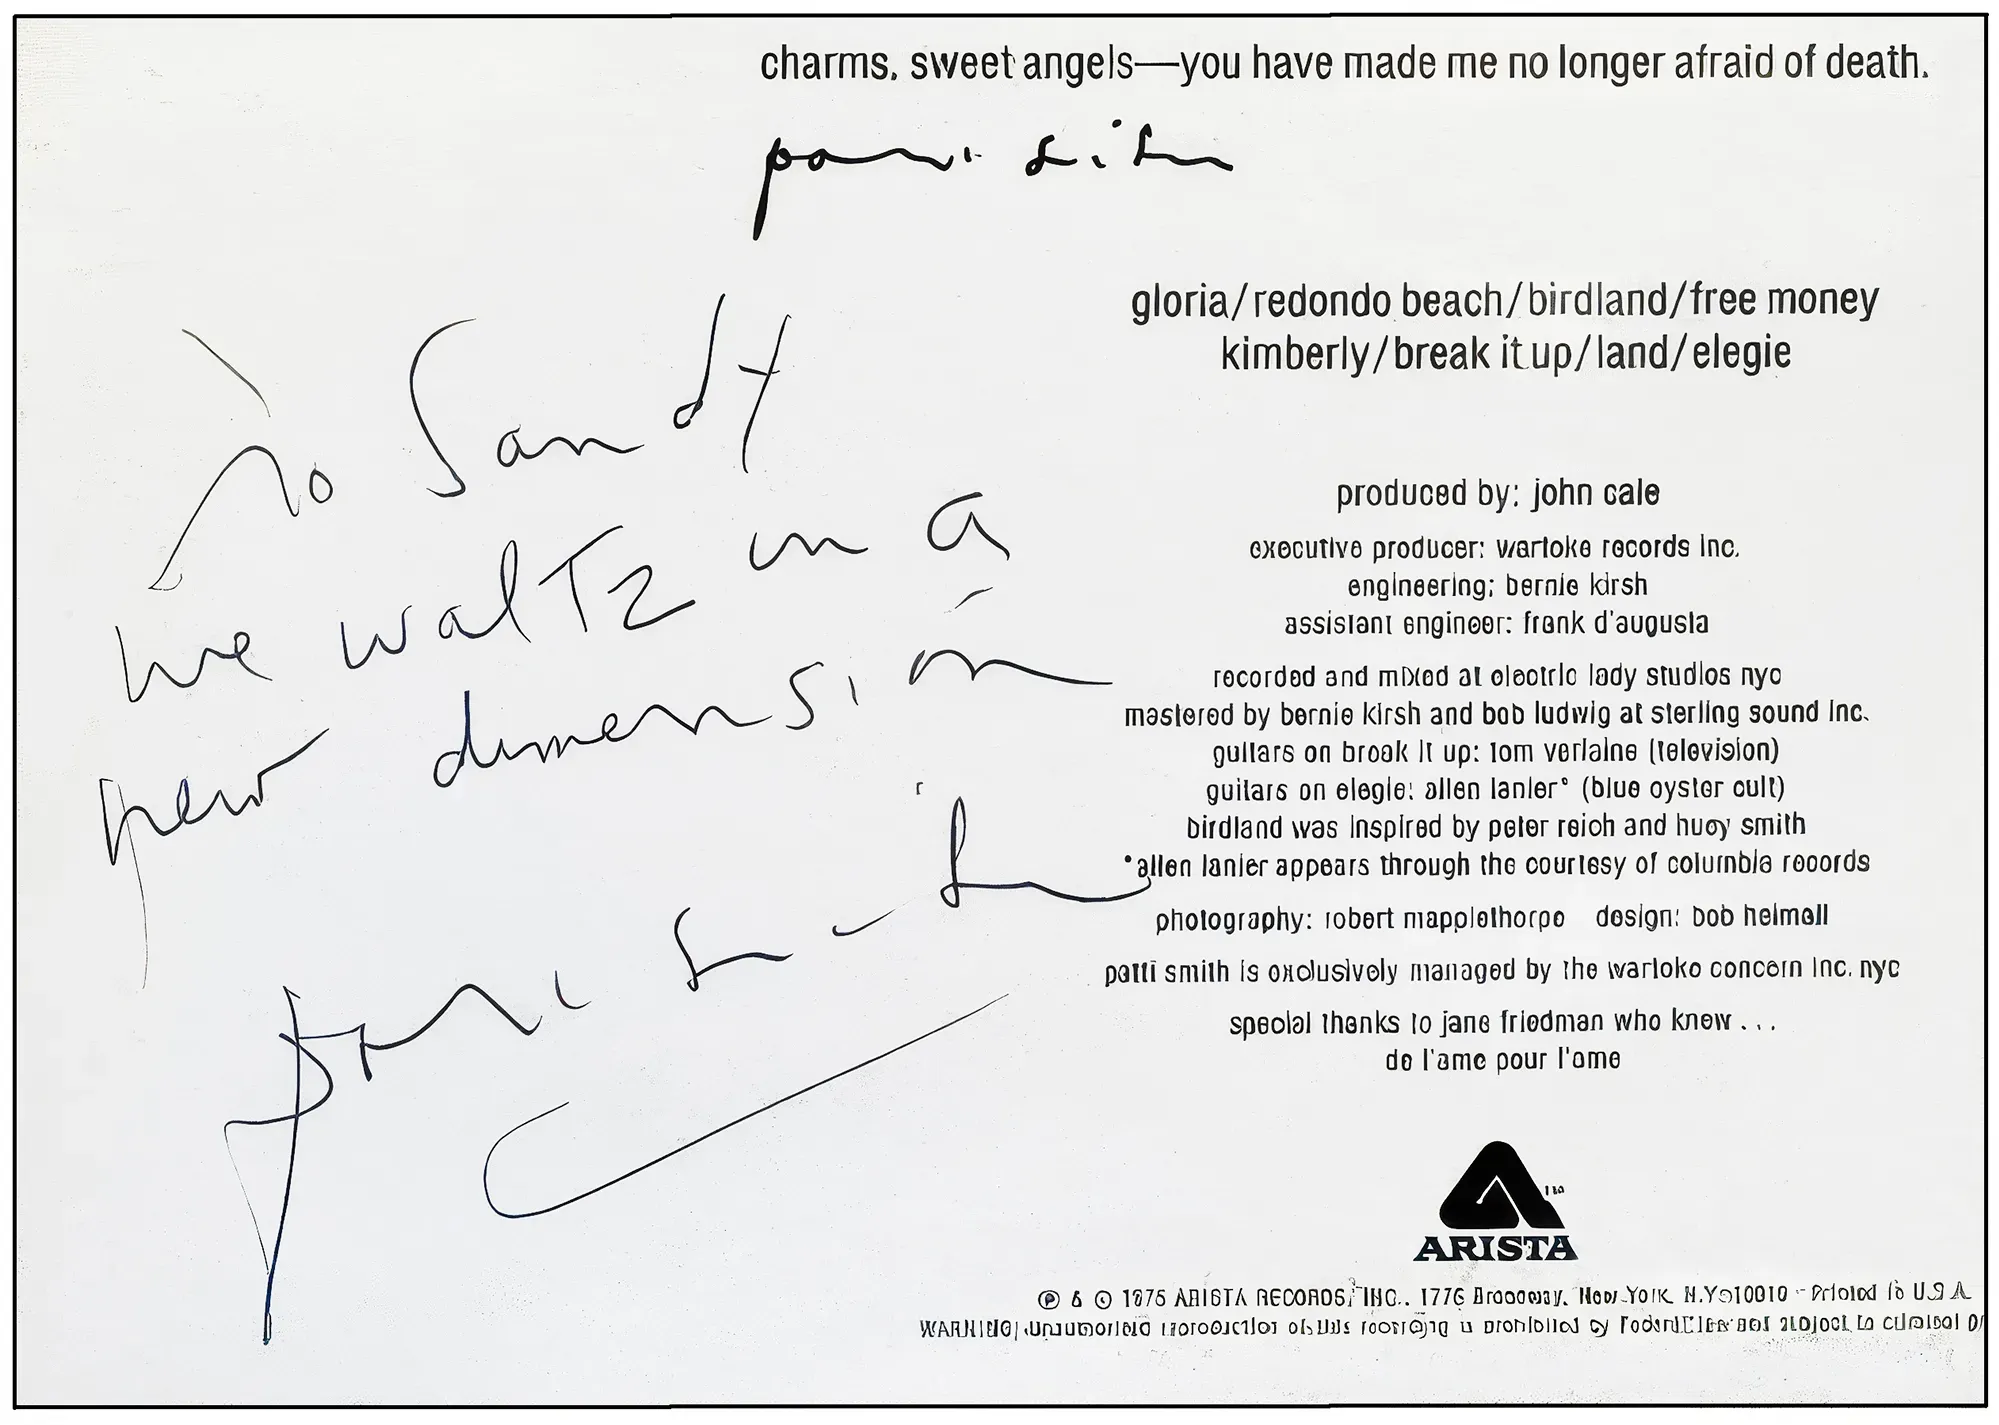 charms. sweet angels—you have made me no longer afraid of death.
patti smith
gloria/redondo beach/birdland/free money
kimberly/break it up/land/elegie
To Sandy
we waltz in a
new dimension
patti smith
produced by: john cale
executive producer: wartoke records inc.
engineering: bernie kirsh
assistant engineer: frank d'augusta
recorded and mixed at electric lady studios nyc
mastered by bernie kirsh and bob ludwig at sterling sound inc.
guitars on break it up: tom verlaine (television)
guitars on elegie: allen lanier* (blue oyster cult)
birdland was inspired by peter reich and huey smith
*allen lanier appears through the courtesy of columbia records
photography: robert mapplethorpe design: bob heimall
patti smith is exclusively managed by the wartoke concern inc. nyc
special thanks to jane friedman who knew . . .
de l'ame pour l'ame
ARISTA
℗ & © 1975 ARISTA RECORDS, INC., 1776 Broadway, New York, N.Y. 10019 - Printed in U.S.A.
WARNING: Unauthorized reproduction of this recording is prohibited by Federal law and subject to criminal